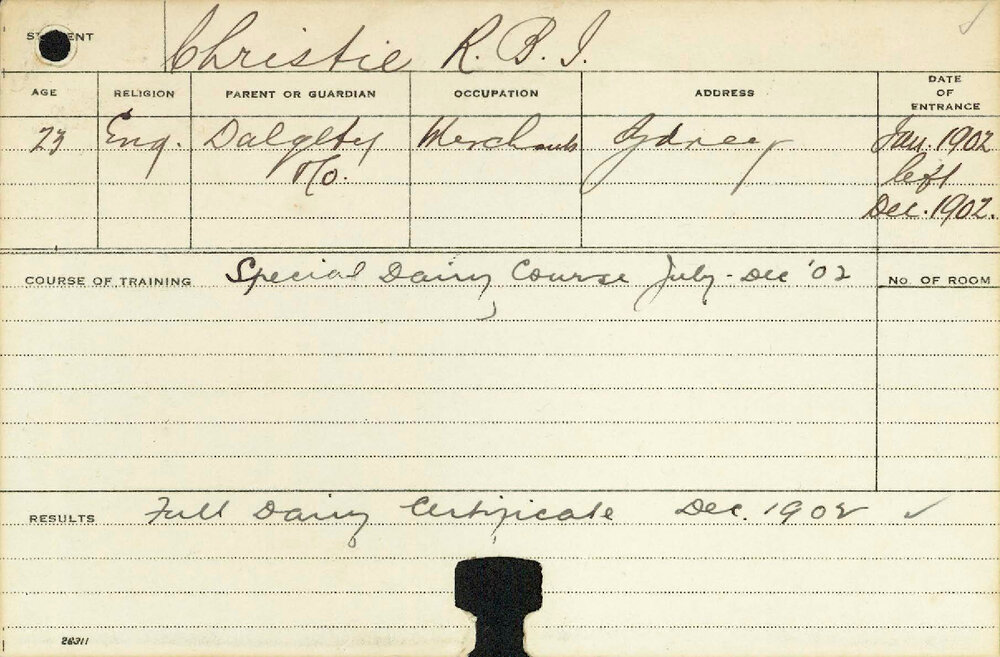 STUDENT Christie R. B. I.
AGE RELIGION PARENT OR GUARDIAN OCCUPATION ADDRESS DATE OF ENTRANCE
23 Eng. Dalgety Merchants Sydney Jan. 1902
&Co. left
Dec. 1902.
COURSE OF TRAINING Special Dairy Course July - Dec '02 No. OF ROOM
RESULTS Full Dairy Certificate Dec. 1902 ✓
26311